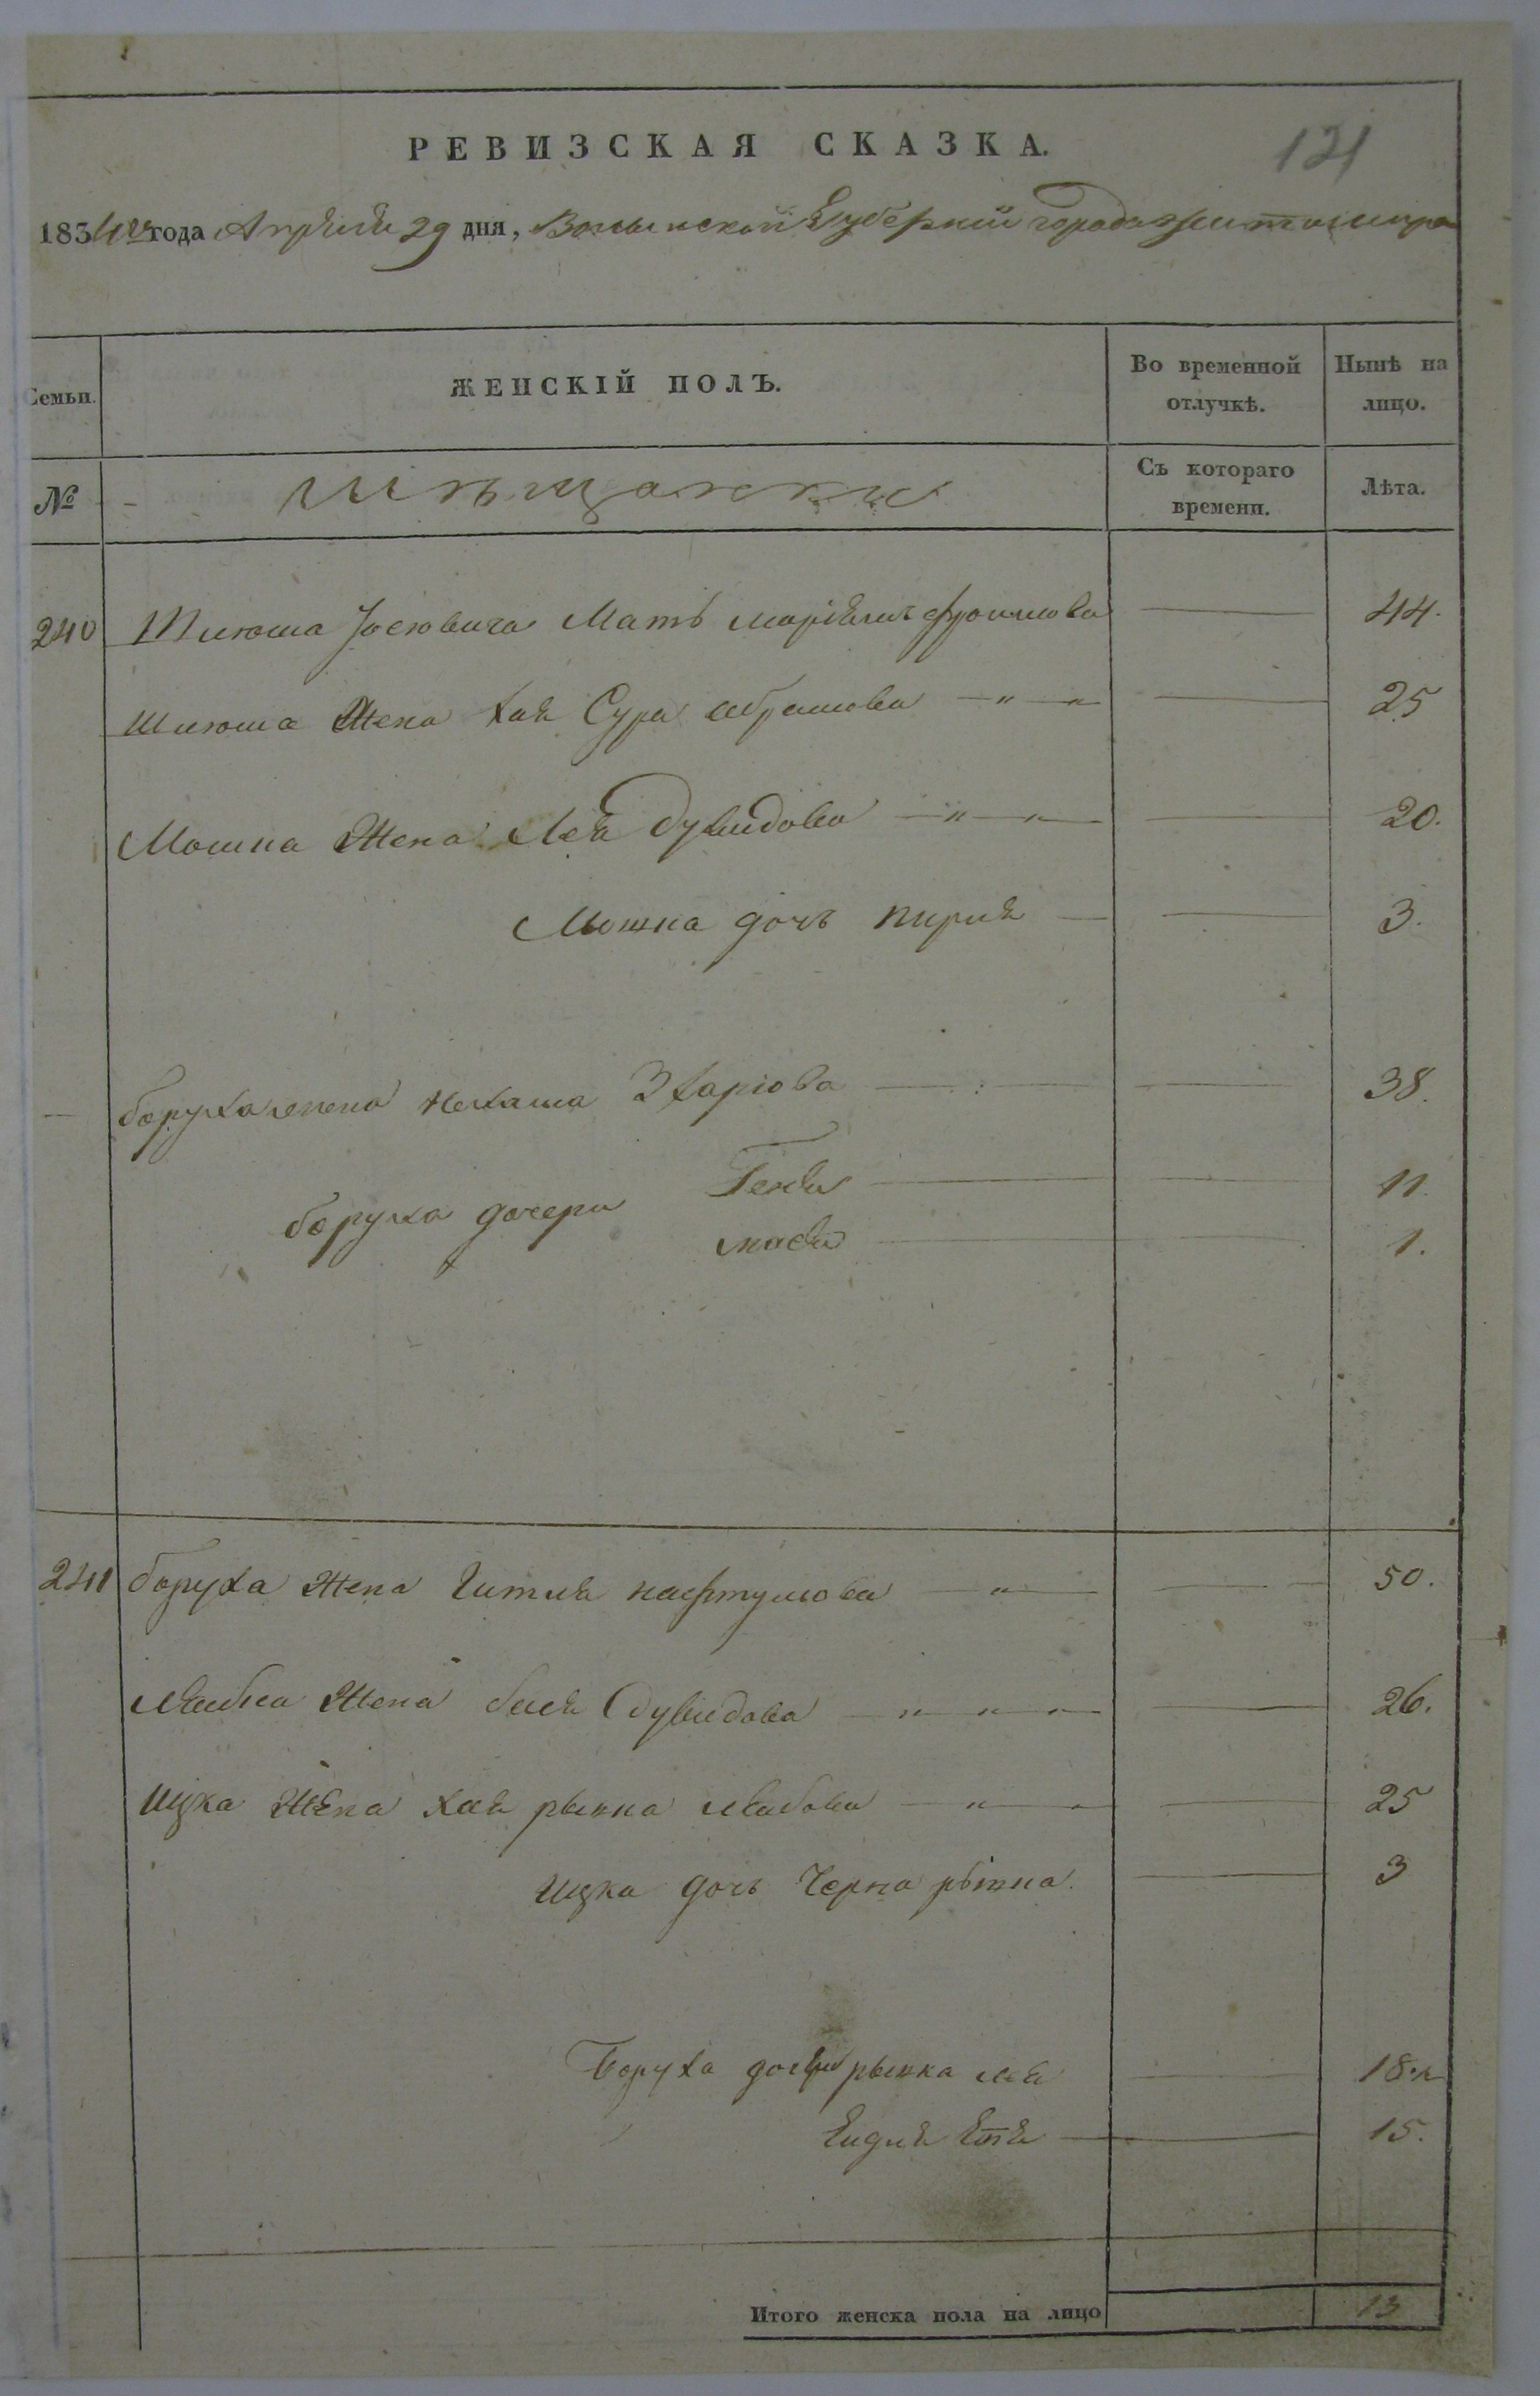 РЕВИЗСКАЯ СКАЗКА. 121
1834го года Апреля 29 дня, Волынской Губернии города Житомира
Семьи. ЖЕНСКІЙ ПОЛЪ. Во временной отлучкѣ. Нынѣ на лицо.
№ Мѣщанскиє Съ котораго времени. Лѣта.
240 Шлюма Мать Фроимова 44.
Шлюма Жена Хая Сура Абрамова 25
Мошка Жена Лея Дувидова 20.
Мошка дочь Пирля 3.
Боруха жена Нехама 38.
Боруха дочери Генда 11.
1.
241 Боруха Жена Гитля Нафтулова 50.
Лейбка Жена Бася Дувидова 26.
Ицка Жена Хая рывка Лейбова 25
Ицка дочь Черна рывка. 3
Боруха дочери рывка Лея 18
Етя 15.
Итого женска пола на лицо 13